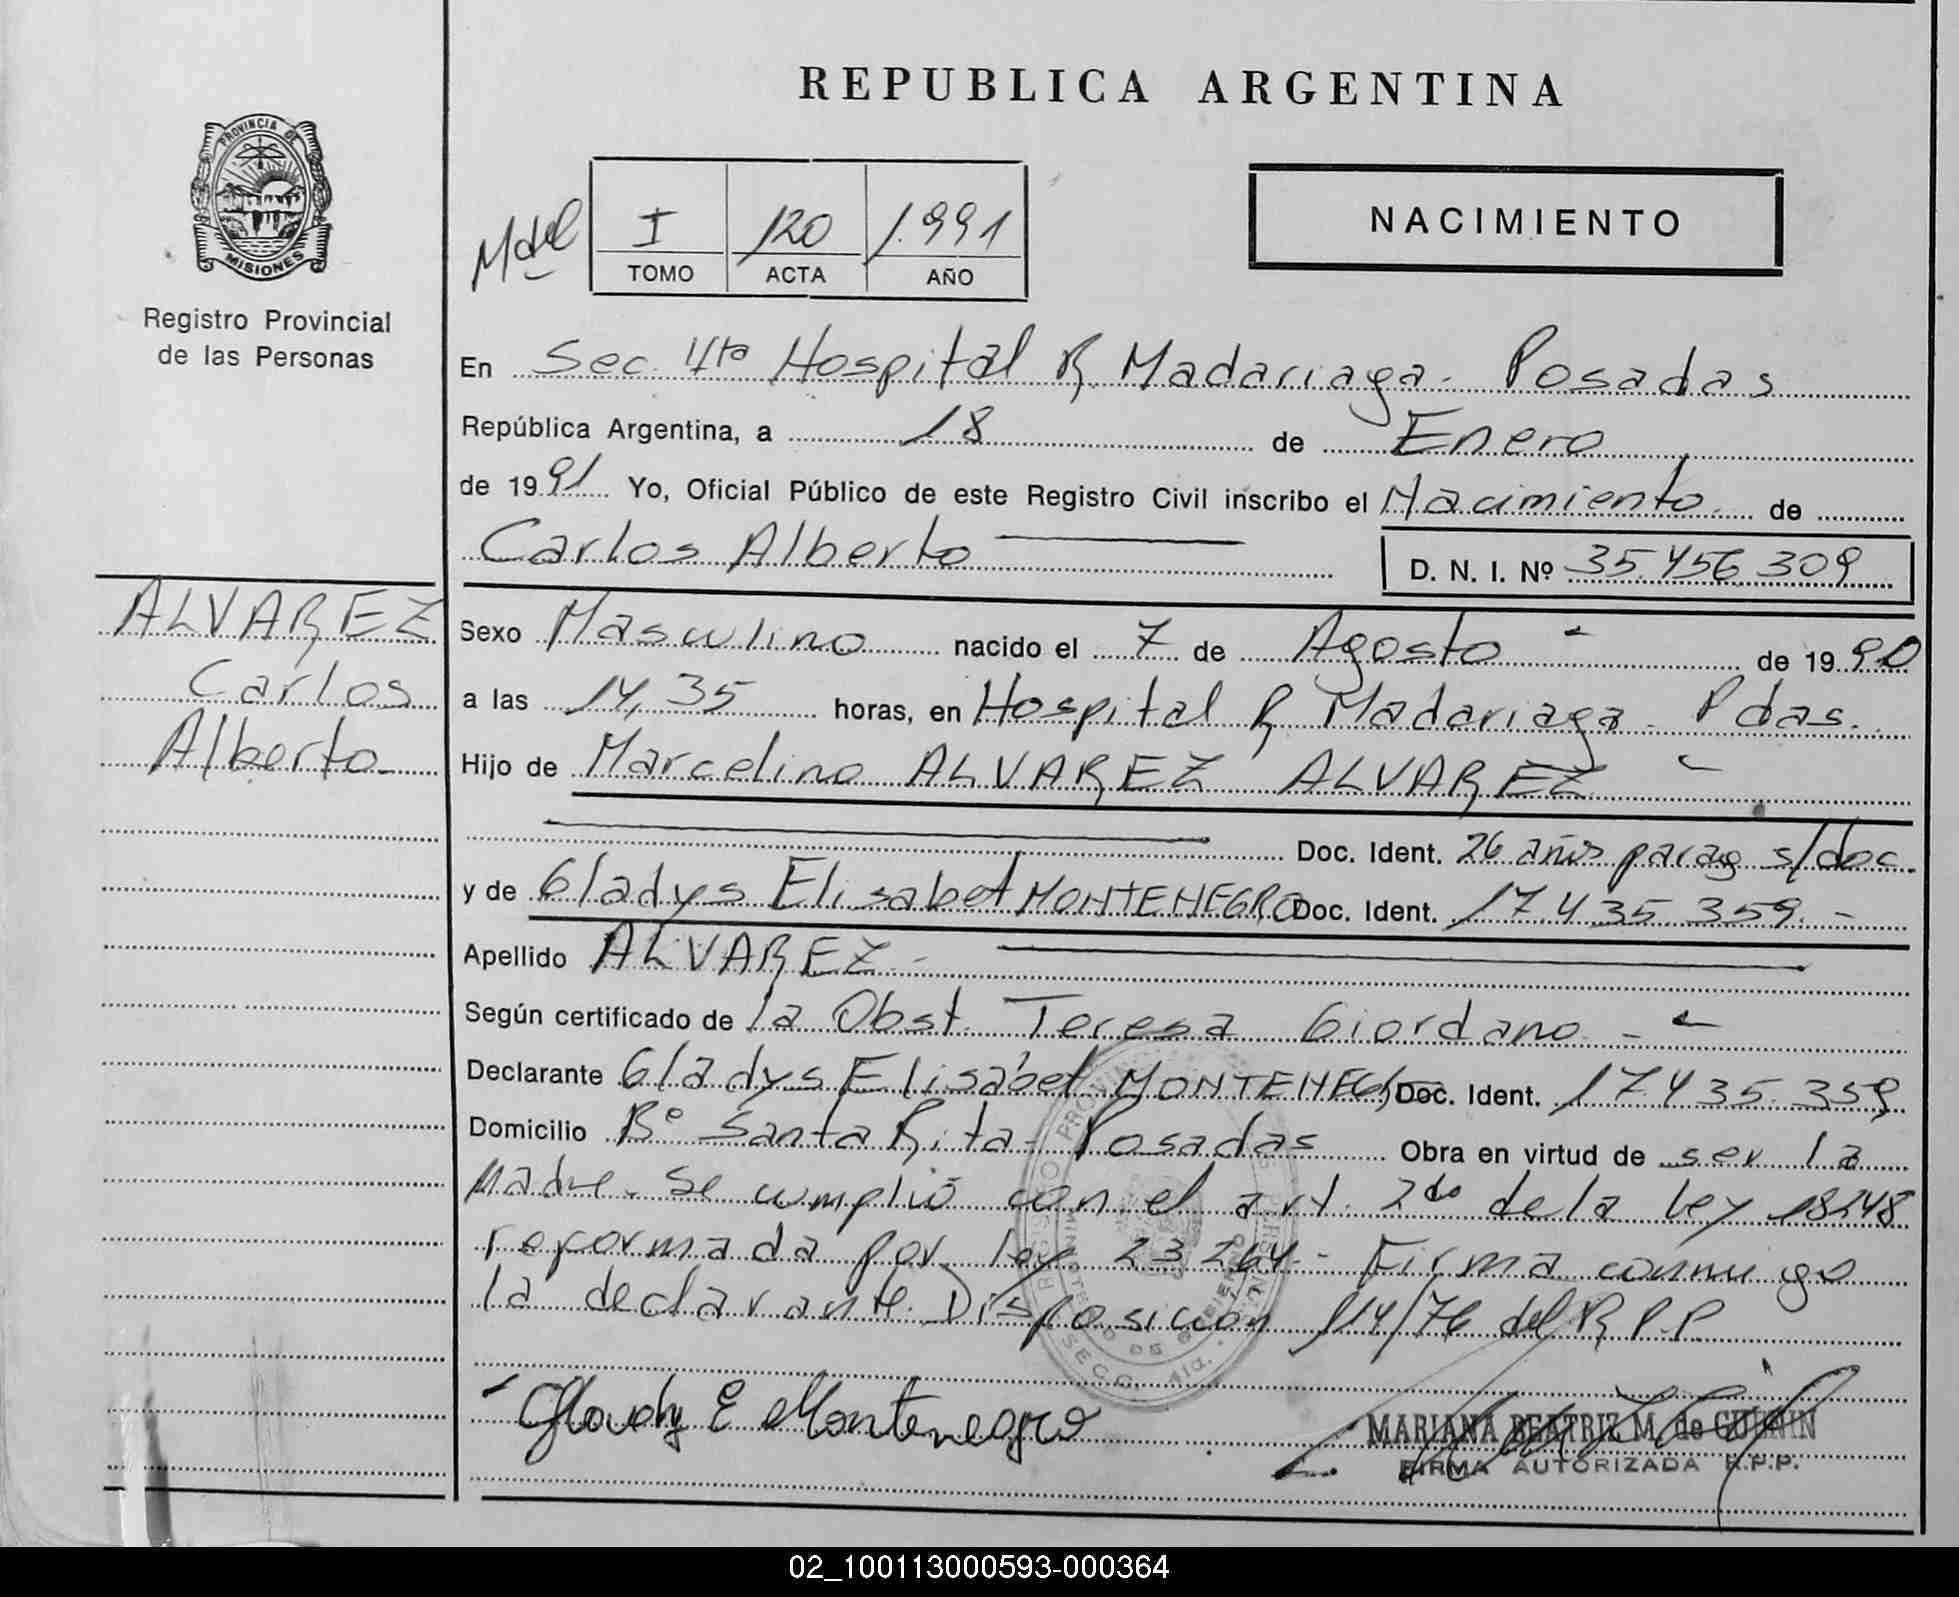 REPUBLICA ARGENTINA
PROVINCIA DE
MISIONES
Registro Provincial
de las Personas
NACIMIENTO
Mdel I 120 1.991
TOMO ACTA AÑO
En Sec. 4ta Hospital R. Madariaga - Posadas
República Argentina, a 18 de Enero
de 1991 Yo, Oficial Público de este Registro Civil inscribo el Nacimiento de
Carlos Alberto D. N. I. Nº 35.456.309
ALVAREZ
Carlos
Alberto
Sexo Masculino nacido el 7 de Agosto - de 1990
a las 14,35 horas, en Hospital R. Madariaga - Pdas.
Hijo de Marcelino ALVAREZ ALVAREZ -
Doc. Ident. 26 años parag s/doc.
y de Gladys Elisabet MONTENEGRO Doc. Ident. 17.435.359.-
Apellido ALVAREZ -
Según certificado de la Obst. Teresa Giordano -
Declarante Gladys Elisabet MONTENEGRO Doc. Ident. 17.435.359
Domicilio Bº Santa Rita - Posadas Obra en virtud de ser la
Madre. Se cumplió con el art. 2do de la ley 18248
reformada por ley 23.264.- Firma conmigo
la declarante. Disposicion 114/76 del R.P.P.
Gladys E Montenegro
MARIANA BEATRIZ M. de
FIRMA AUTORIZADA R.P.P.
02_100113000593-000364